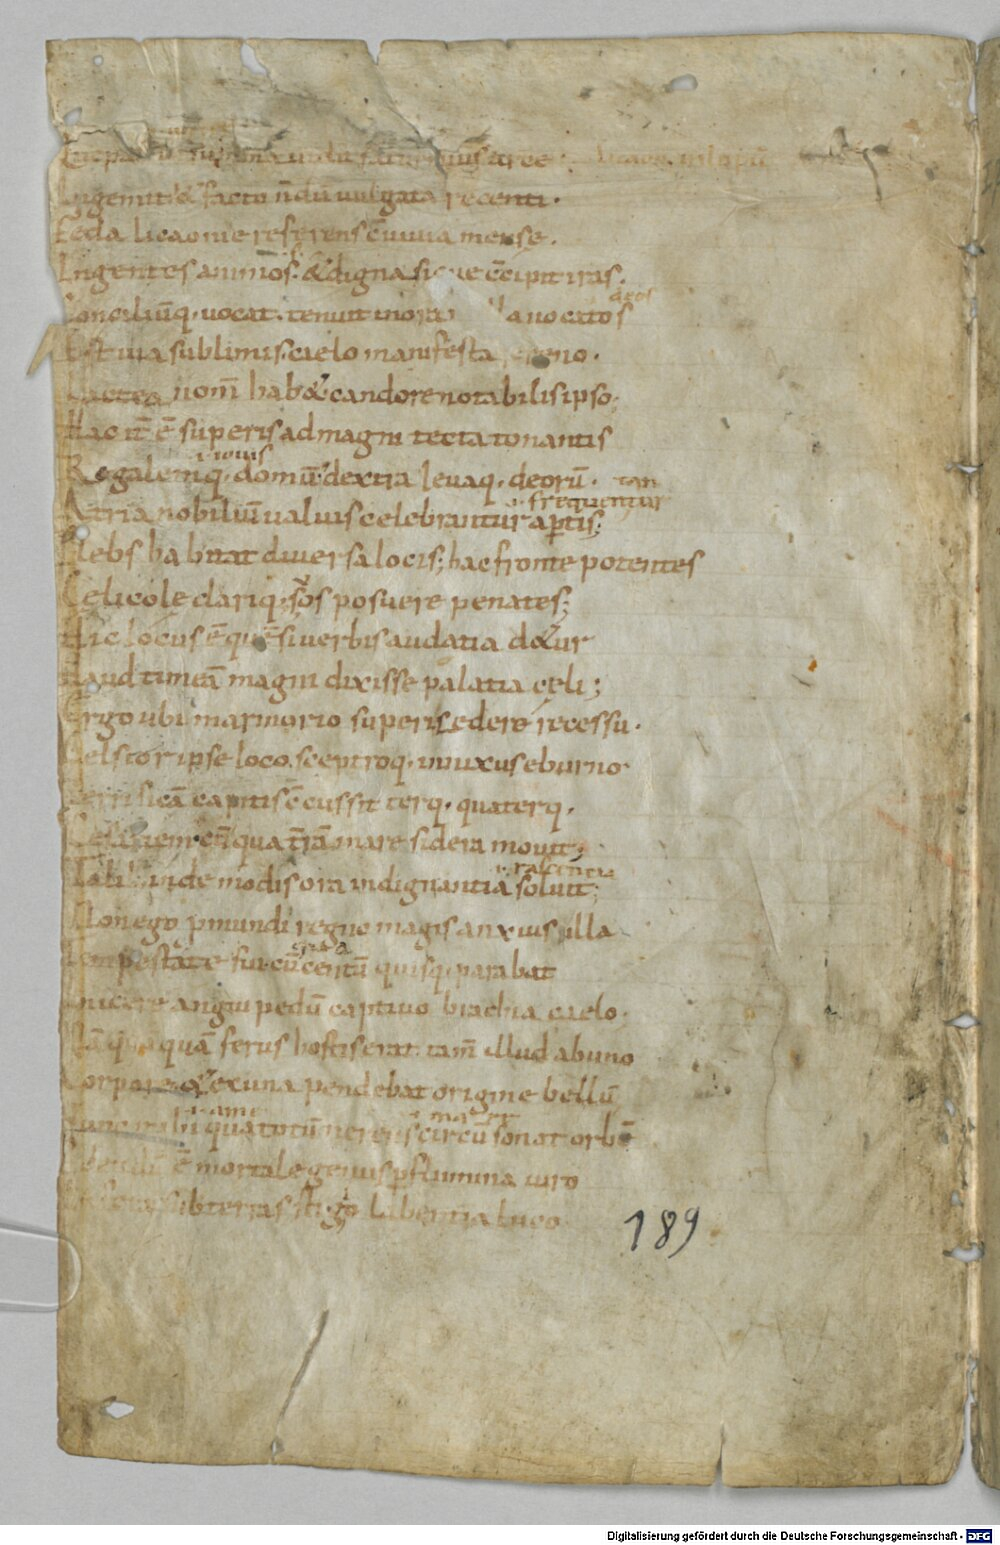 ingemit & facto nd̄u uulgata recenti·
Feda licaonie referens c̄uiuia mense.
Ingentes animos. & digna c̄cipit iras.
deos
Conciliūq· uocat. tenuit uocatos
Est uia sublimis caelo manifesta sereno·
Lactea nom̄ hab& candore notabilis ipso·
Hac it̄ ē superis ad magni tecta tonantis
i iouis
Regalemq· domū· dextra leuaq· deorū·
frequentur
Atria nobiliūm ualuis celebrantur ap̄tis;
Plebs habitat diuersa locis; hac fronte potentes
Celicole clariq· s̄os posuere penates;
Hic locus ē que si uerbis audatia d&ur
Haud timeā magni dixisse palatia celi;
Ergo ubi marmorio superi sedere recessu·
Celsior ipse loco. sceptroq· innixus eburno·
Terrificā capitis c̄cussit terq· quaterq·
Cesariem cū qua t̄rā mare sidera mouit;
Talib; inde modis ora indignantia soluit;
Non ego p mundi regno magis anxius illa
Tempestate fui· cū centū quisq· parabat
Inicere anguipedū captiuo brachia caelo·
Nā quāquā ferus hostis erat. tam̄ illud ab uno
Corpore & ex una pendebat origine bellū
Nunc mihi qua totū nereus circū sonat orbē
Perdendū ē mortale genus p flumina iuro
Infera sub terras stigio labentia luco
189
Digitalisierung gefördert durch die Deutsche Forschungsgemeinschaft - DFG